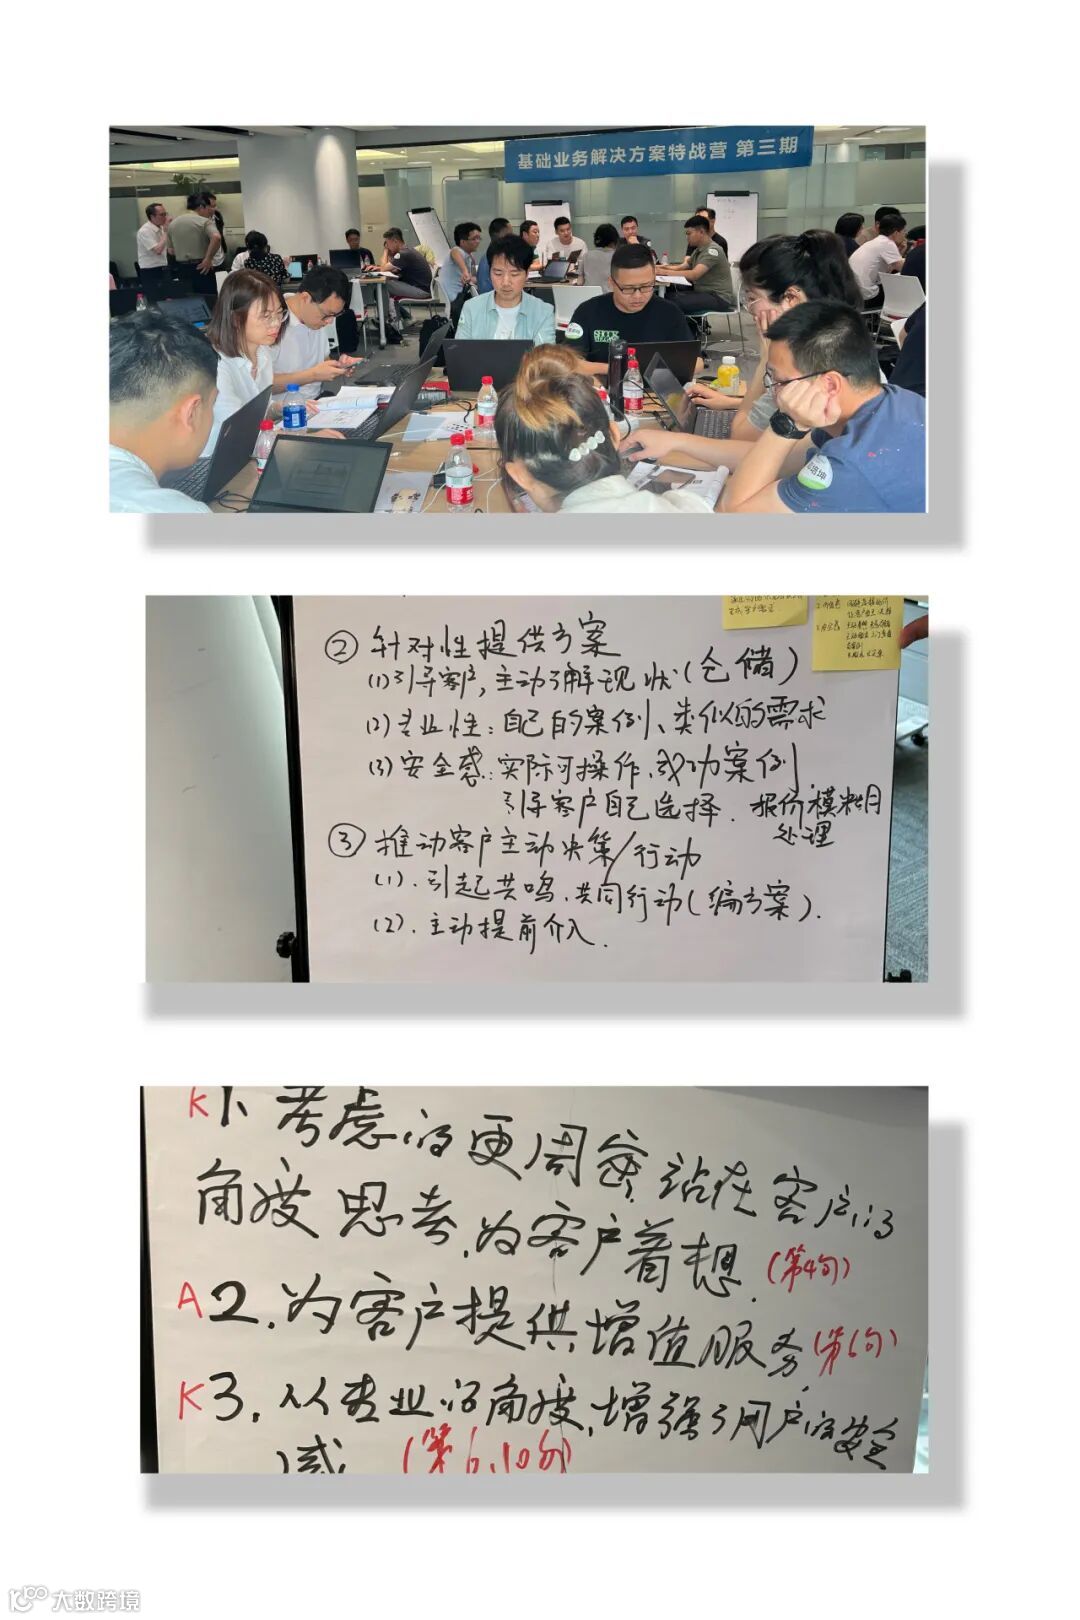 基础业务解决方案特战营 第三期
② 针对性提供方案
(1)引导客户,主动了解现状(仓储)
(2)专业性:自己的案例、类似的需求
(3)安全感:实际可操作、成功案例
引导客户自己选择.报价模糊
处理
③ 推动客户主动决策/行动
(1).引起共鸣、共同行动(编方案).
(2).主动提前介入.
K1、考虑的更周密,站在客户的
角度思考,为客户着想.(第4句)
A2.为客户提供增值服务(第6句)
K3.从专业的角度,增强了用户的安全
感 (第6、10句)
大数跨境